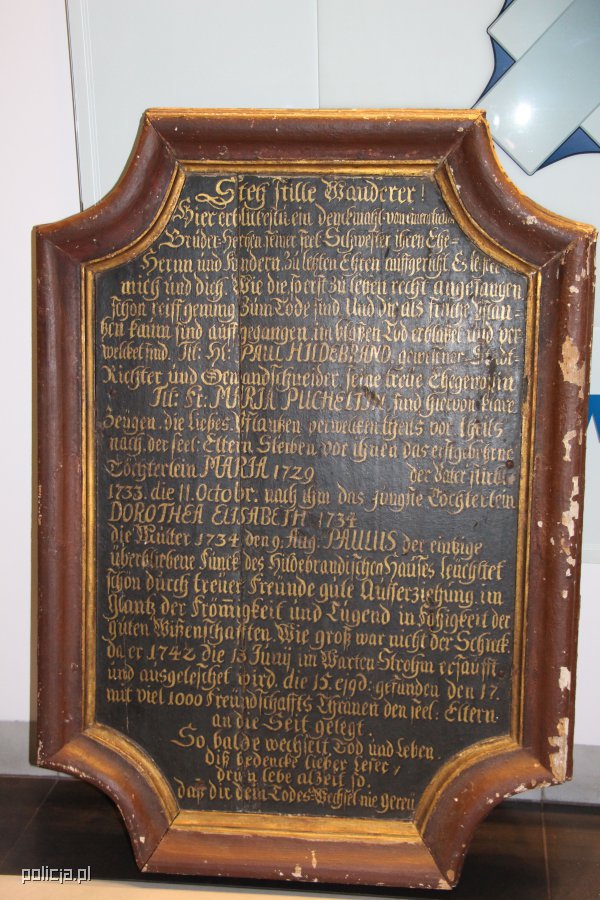 Steh stille Wanderer!
Hier erblickestu ein denckmahl von einem
Brüder Hertzen seiner seel: Schwester ihren Ehe-
Herrn und Kindern zu letzten Ehren auffgericht Es
mich und dich, Wie die so erst zu leben recht angefangen
schon reiff genung zum Tode sind Und die als frische Pflan-
tzen kaum sind auffgegangen im blaßen Tod erblaßet und ver
welcket sind. Tit: Hr: PAUL HILDEBRAND, gewesner Stadt
Richter und Gewandschneider, seine treue Ehegenoßin
Tit: Fr: MARIA PUCHELTIN sind hiervon klare
Zeugen. die Liebes-Pflantzen verwelcken theils vor theils
nach der seel: Eltern Sterben, vor ihnen das erstgebohrne
Töchterlein MARIA 1729 der Vater stirbt
1733. die 11. Octobr. nach ihm das jüngste Töchterlein
DOROTHEA ELISABETH 1734
die Mutter 1734 den 9. Aug: PAULUS, der eintzige
überbliebene Funck des Hildebrandischen Hauses leuchtet
schon durch treuer Freunde gute Aufferziehung im
Glantz der Frömigkeit und Tugend in Fähigkeit der
guten Wißenschafften. Wie groß war nicht der Schreck
da er 1742 die 13 Junij im Warten Strohm ersäufft
und ausgeleschet wird. die 15. ejqd: gefunden den 17.
mit viel 1000 Freundschaffts Thränen den seel: Eltern
an die Seit gelegt.
So balde wechselt Tod und Leben
Diß bedencke lieber Leser,
drum lebe alzeit so
daß dir dein Todes-Wechsel nie gereu
policja.pl